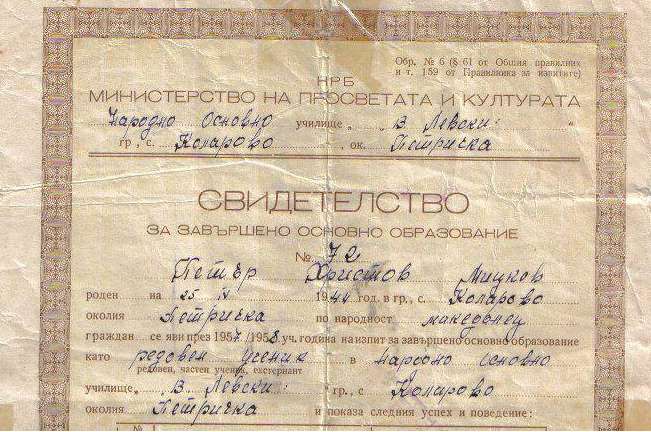 Обр. № 6 (§ 61 от Общия правилник
и т. 159 от Правилника за изпитите)
НРБ
МИНИСТЕРСТВО НА ПРОСВЕТАТА И КУЛТУРАТА
Народно Основно училище „В. Левски“
гр., с. Коларово, ок. Петричка
СВИДЕТЕЛСТВО
ЗА ЗАВЪРШЕНО ОСНОВНО ОБРАЗОВАНИЕ
№ 72
Петър Христов Мицков
роден на 25 IV 1944 год. в гр., с. Коларово
околия Петричка по народност македонец
граждан се яви през 1957/1958 уч. година на изпит за завършено основно образование
като редовен ученик в народно основно
редовен, частен ученик, екстернат
училище „В. Левски“ гр., с. Коларово
околия Петричка и показа следния успех и поведение:
№